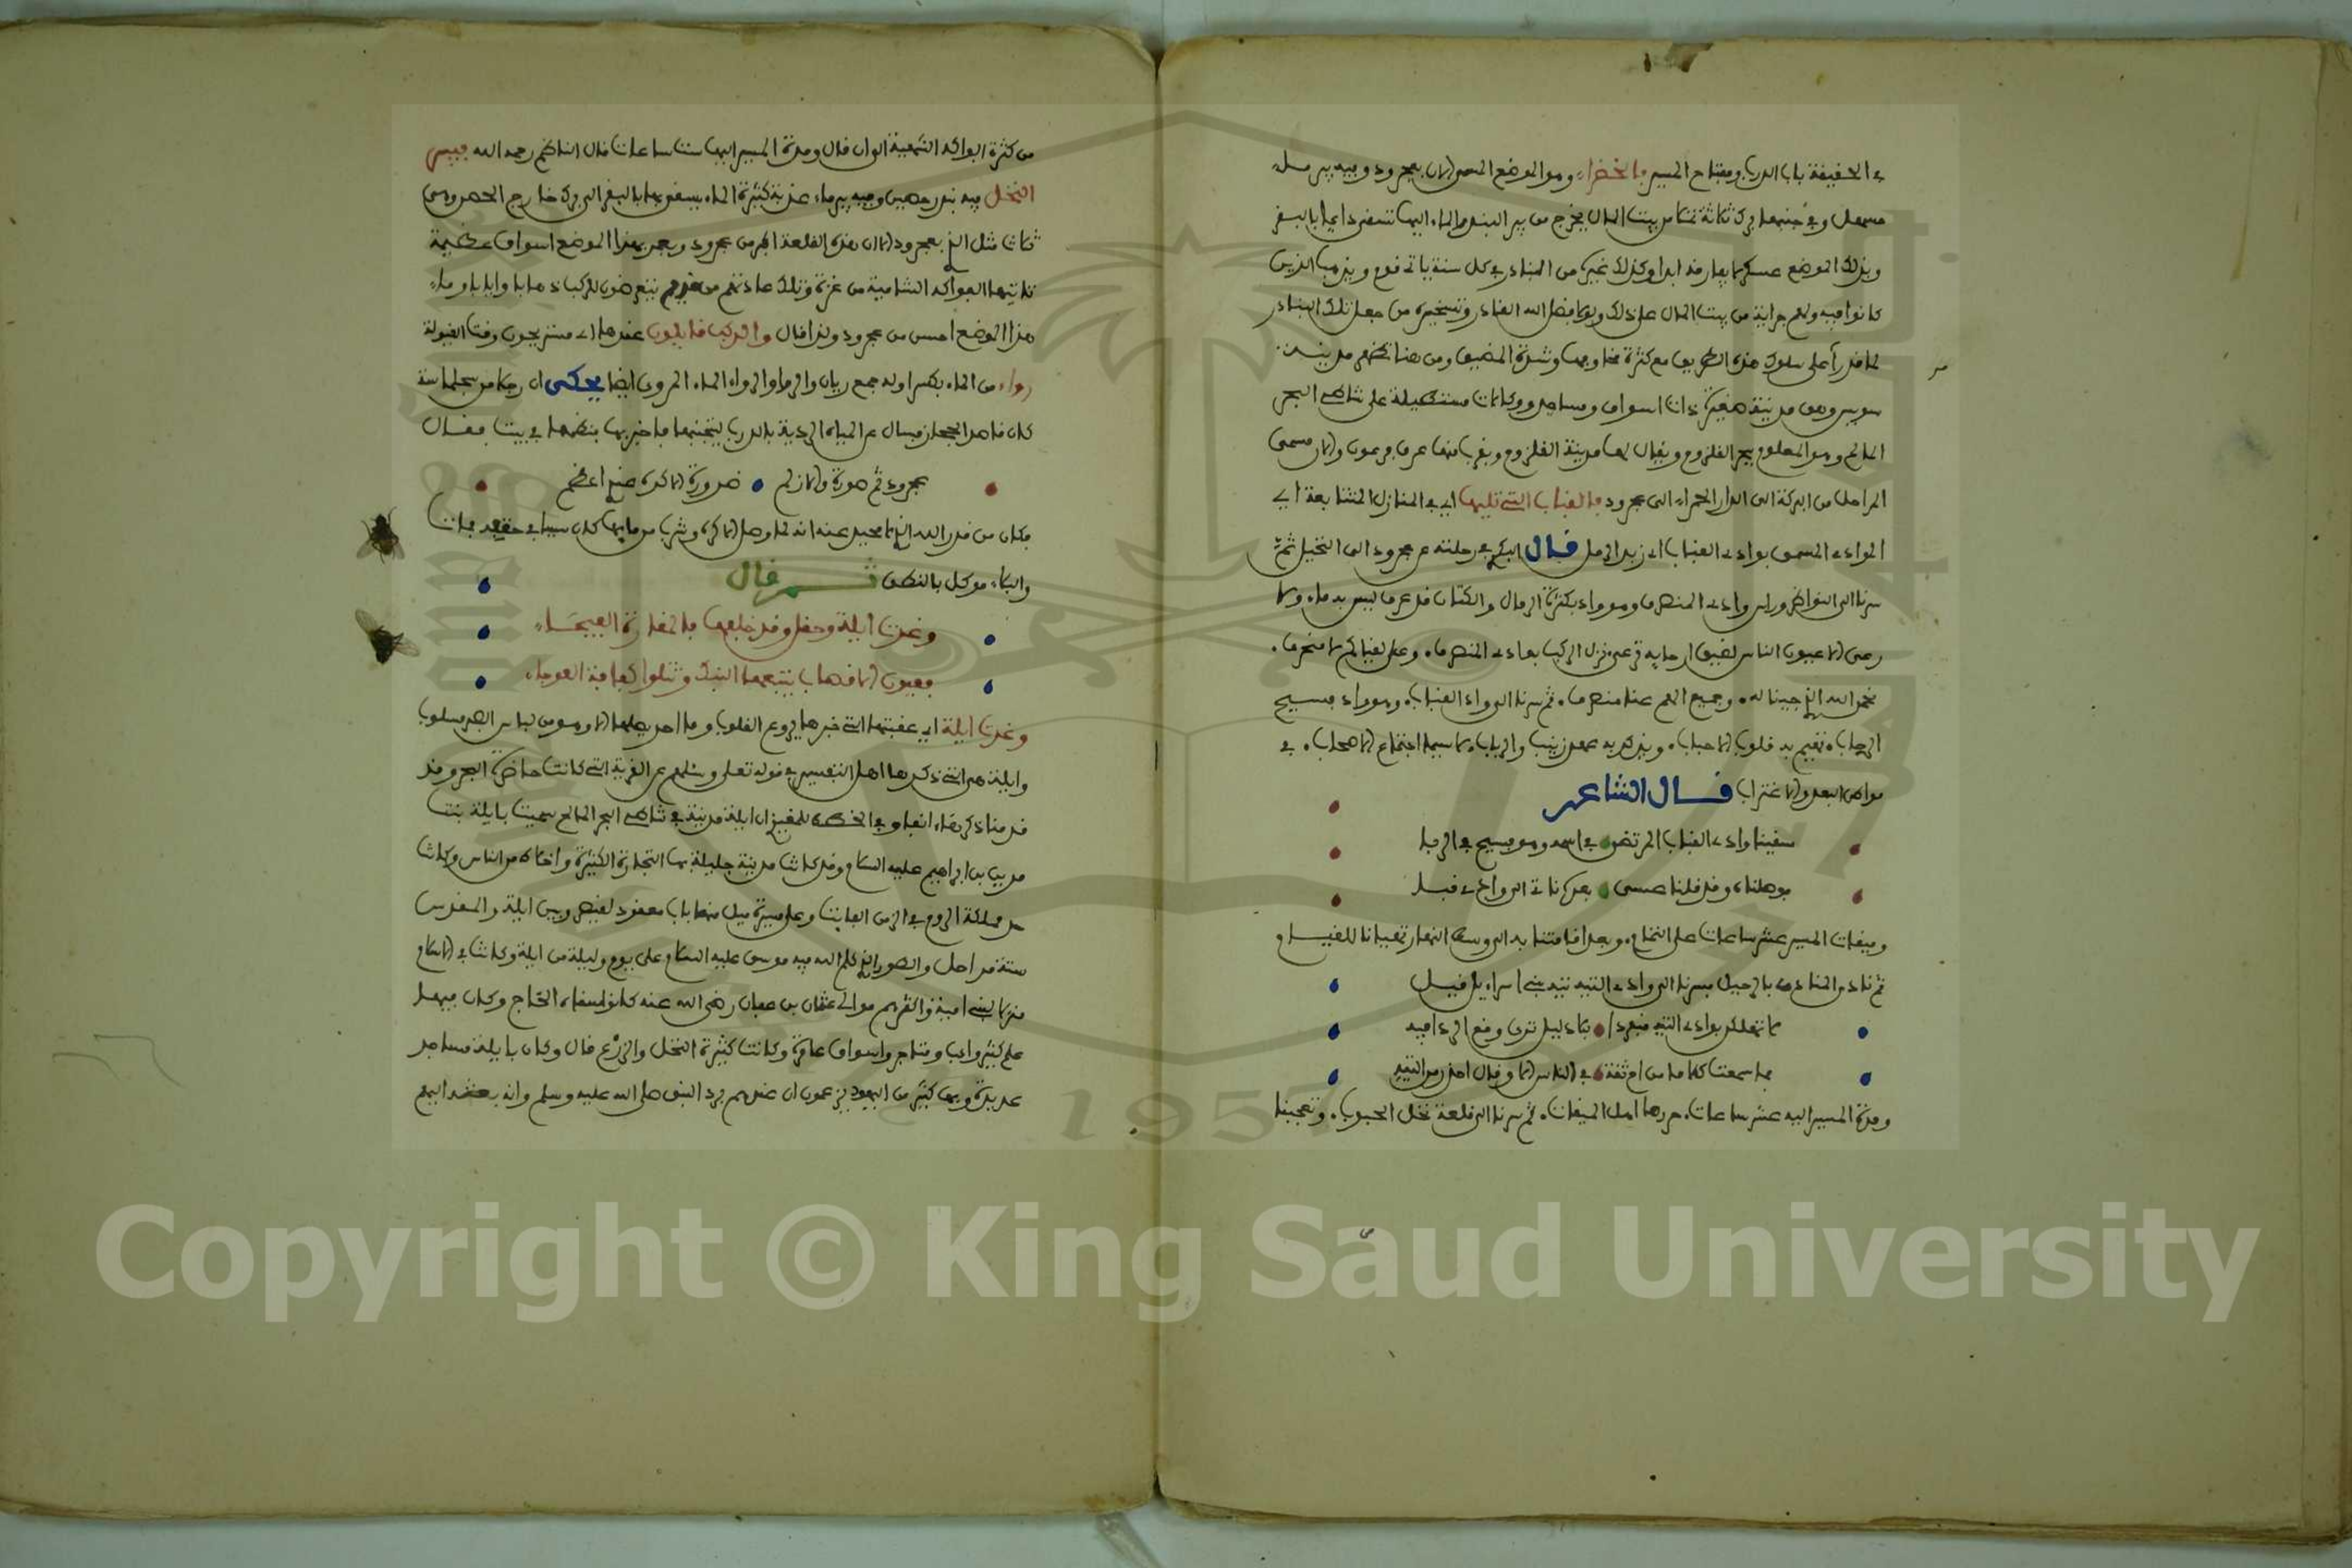 في الحقيقة باب الدرب ومفتاح المسير فالخضراء وهو الموضع المسمى الان بعجرود وفيه بير مسهل
مسهل وفي جنبها برك ثلاثة تملا من بيت المال يخرج من بير البندر والماء اليها تتسفر دايما بالبقر
وبذلك الموضع عسكر لا يفارقه ابدا وكذلك غيره من البنادر في كل سنة ياتي قوم ويذهب الذين
كانوا فيه ولهم جراية من بيت المال على ذلك ولولا فضل الله القادر وتسخيره من جعل تلك البنادر
لما قدر أحد على سلوك هذه الطريق مع كثرة مخاوفها وشدة المضيق ومن هنا تظهر مدينة
سويس وهي مدينة صغيرة ذات اسواق ومساجد ووكالات مستطيلة على شاطئ البحر
المالح وهو المعلوم ببحر القلزوم ويقال لها مدينة القلزوم وبقرب منها غرق فرعون والان مسمى
المراحل من البركة الى الدار الحمراء الى عجرود فالقباب التي تليها اي في المنازل المتتابعة اي
الوادي المسمى بوادي القباب اي زبد الرمل قال البكري في رحلته من عجرود الى النخيل ثم
سرنا الى النواطر وراس وادي المنصرف وهو واد بكثرة الرمال والكثبان قد عرف ليس به ماء ولا
رعى الا عيون الناس لضيق ارجايه ترعى نزل الركب بوادي المنصرف وعلى لقياكم لا منصرف
نحمد الله الذي حبينا له وجميع الهم عنا منصرف ثم سرنا الى واد القباب وهو واد فسيح
الرحاب تهيم به قلوب الاحباب ويذكر به عهد زينب والرباب ولا سيما اجتماع الاصحاب في
مواطن البعد والاغتراب قال الشاعر
سقينا وادي القباب المرتضى في اسمه وهو فسيح في الرحبا
فوصلناه وقد قلنا عسى بعد كرناتي الرواح في قبا
وميقات المسير عشر ساعات على التمام وبعد اقامتنا به الى وسط النهار تهيانا للقيام و
ثم نادى المنادي بالرحيل فسرنا الى وادي التيه تيه بني اسرائيل قيل
لا تهلكن بوادي التيه منفردا بلا دليل ترى وقع الردا فيه
فما سمعت كلاما من اخ ثقة في الناس الا وقال احذر من التيه
ومدة المسير اليه عشر ساعات حررها اهل الميقات ثم سرنا الى قلعة نخل المحبوب وتعجبنا
من كثرة الفواكه الشهية الوان قال ومدة المسير اليها ست ساعات قال الناظم رحمه الله فبيس
النخل فيه بندر حصين وفيه بير ماء عذبة كثيرة الماء يسقون بها بالبقر الى برك خارج الحصر وهي
ثلاث مثل الذي بعجرود الا ان هذه القلعة اكبر من عجرود ويعمر بهذا الموضع اسواق عظيمة
تاتيها الفواكه الشامية من غزة وتلك عادتهم من قديم يتعرضون للركب ذهابا وايابا وماء
هذا الموضع احسن من عجرود ولذا قال والركب قايلون عندها اي مستريحون وقت القيولة
رواء من الماء بكسر اوله جمع ريان والرماوا الرواء الماء المروي ايضا يحكى ان رجلا من سجلماسة
كان قاصدا الحجاز فسال عن المياه الردية بالدرب ليتجنبها فاخبر بها فنظمها في بيت فقال
عجرود ثم صورة والازلم ضرورة الاكره منه اعظم
فكان من قدر الله الذي لا محيد عنه انه لما وصل الاكره وشرب من مايها كان سببا في حتفه فمات
والبلاء موكل بالنطق ثم قال
وغدت ايلة وحقل وقد خلفها فالمغارة الفيحاء
فعيون الاقصاب يتبعها النبك وتتلوا كفافة العوجاء
وغدت ايلة اي عقبتها التي خبرها يروع القلوب وما احد يصلها الا وهو من لباس الصبر مسلوب
وايلة هي التي ذكرها اهل التفسير في قوله تعلى وسلهم عن القرية التي كانت حاضرة البحر وقد
قدمنا ذكرها انفا وفي الخطط للمقريزي ان ايلة مدينة في شاطئ البحر المالح سميت بايلة بنت
مدين بن ابراهيم عليه السلام وقد كانت مدينة جليلة بها التجارة الكثيرة واخلاط من الناس وكانت
حد مملكة الروم في الزمن الغابر وعلى مسيرة ميل منها باب معقود لقيصر وبين ايلة والمقدس
ستة مراحل والطور الذي كلم الله فيه موسى عليه السلام على يوم وليلة من ايلة وكانت في الاسلام
منزلا لبني امية واكثرهم موالي عثمان بن عفان رضي الله عنه كانوا سقاة الحاج وكان فيها
علم كثير واداب ومتاجر واسواق عامرة وكانت كثيرة النخل والزرع قال وكان بايلة مساجد
عديدة وبها كثير من اليهود يزعمون ان عندهم برد النبي صلى الله عليه وسلم وانه بعثه اليهم